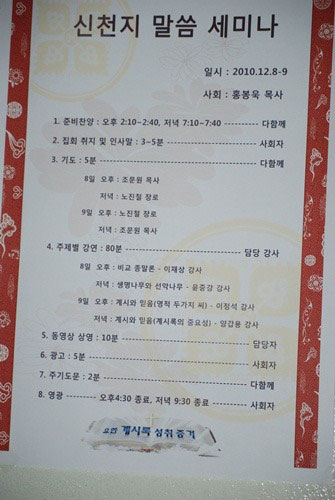 신천지 말씀 세미나
일시 : 2010.12.8-9
사회 : 홍봉욱 목사
1. 준비찬양 : 오후 2:10~2:40, 저녁 7:10~7:40 ---------- 다함께
2. 집회 취지 및 인사말 : 3~5분 ------------------ 사회자
3. 기도 : 5분 -------------------------------- 다함께
8일 오후 : 조문원 목사
저녁 : 노진철 장로
9일 오후 : 노진철 장로
저녁 : 조문원 목사
4. 주제별 강연 : 80분 ------------------------- 담당 강사
8일 오후 : 비교 종말론 - 이재상 강사
저녁 : 생명나무와 선악나무 - 윤중강 강사
9일 오후 : 계시와 믿음(영적 두가지 씨) - 이정석 강사
저녁 : 계시와 믿음(계시록의 중요성) - 양갑용 강사
5. 동영상 상영 : 10분 -------------------------- 담당자
6. 광고 : 5분 -------------------------------- 사회자
7. 주기도문 : 2분 ----------------------------- 다함께
8. 영광 -------- 오후4:30 종료, 저녁 9:30 종료 ------- 사회자
요한 계시록 성취 증거